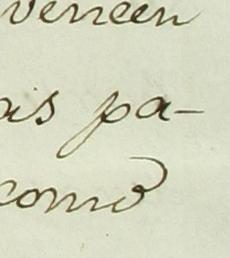 veneen
ais pa-
como